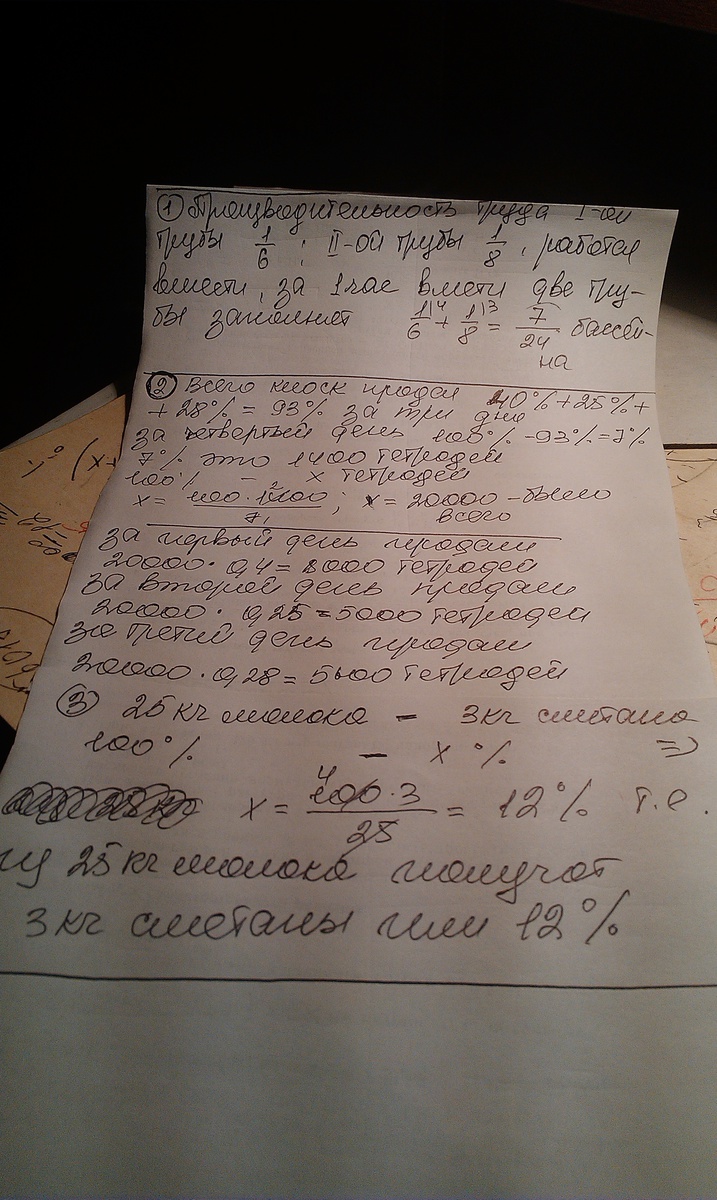 ① Производительность труда I-ой
трубы 1/6 ; II-ой трубы 1/8 , работая
вместе, за 1 час вместе две тру-
бы заполнят 1/6 + 1/8 = 7/24 бассей-
на
② Всего киоск продал 40% + 25% +
+ 28% = 93% за три дня
За четвертый день 100% - 93% = 7%
7% это 1400 тетродей
100% - x тетродей
x = 100 · 1400 / 7 ; x = 20000 - было
всего
за первый день продали
20000 · 0,4 = 8000 тетродей
За второй день продали
20000 · 0,25 = 5000 тетродей
За третий день продали
20000 · 0,28 = 5600 тетродей
③ 25 кг молока - 3 кг сметана
100% - x % =>
x = 100 · 3 / 25 = 12% т.е.
из 25 кг молока получат
3 кг сметаны или 12%